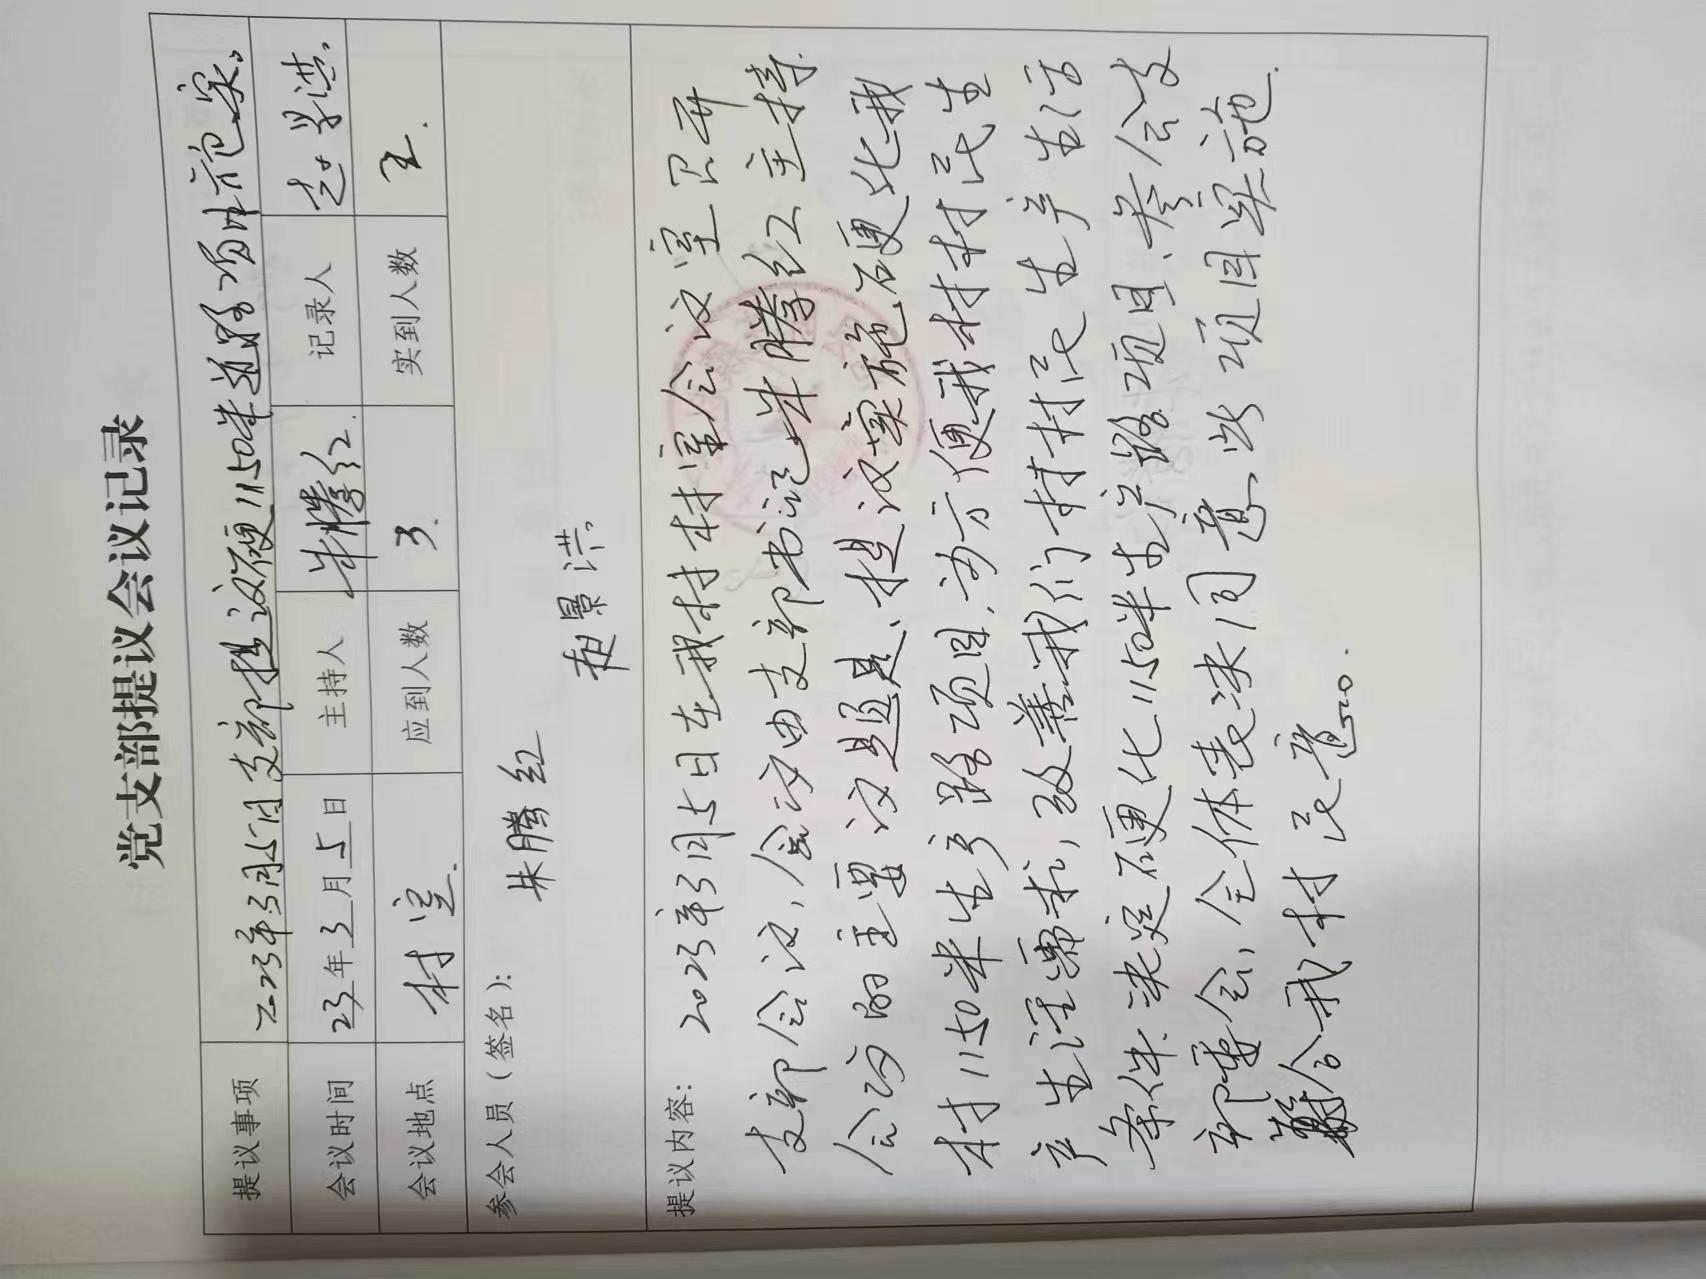 党支部提议会议记录
提议事项 2023年3月5日支部提议硬1150米道路项目方案。
会议时间 23年3月5日 主持人 朱腾红 记录人 赵景洪
会议地点 村室 应到人数 3 实到人数 3
参会人员（签名）：
朱腾红
赵景洪
提议内容： 2023年3月5日在我村村室会议室召开
支部会议，会议由支部书记朱腾红主持
会议的主要议题是、提议实施硬化我
村1150米生产路项目，为方便我村村民生
产生活需求，改善我们村村民生产生活
条件、决定硬化1150米生产路项目、参会支
部委会，全体表决同意、此项目实施
符合我村民意。